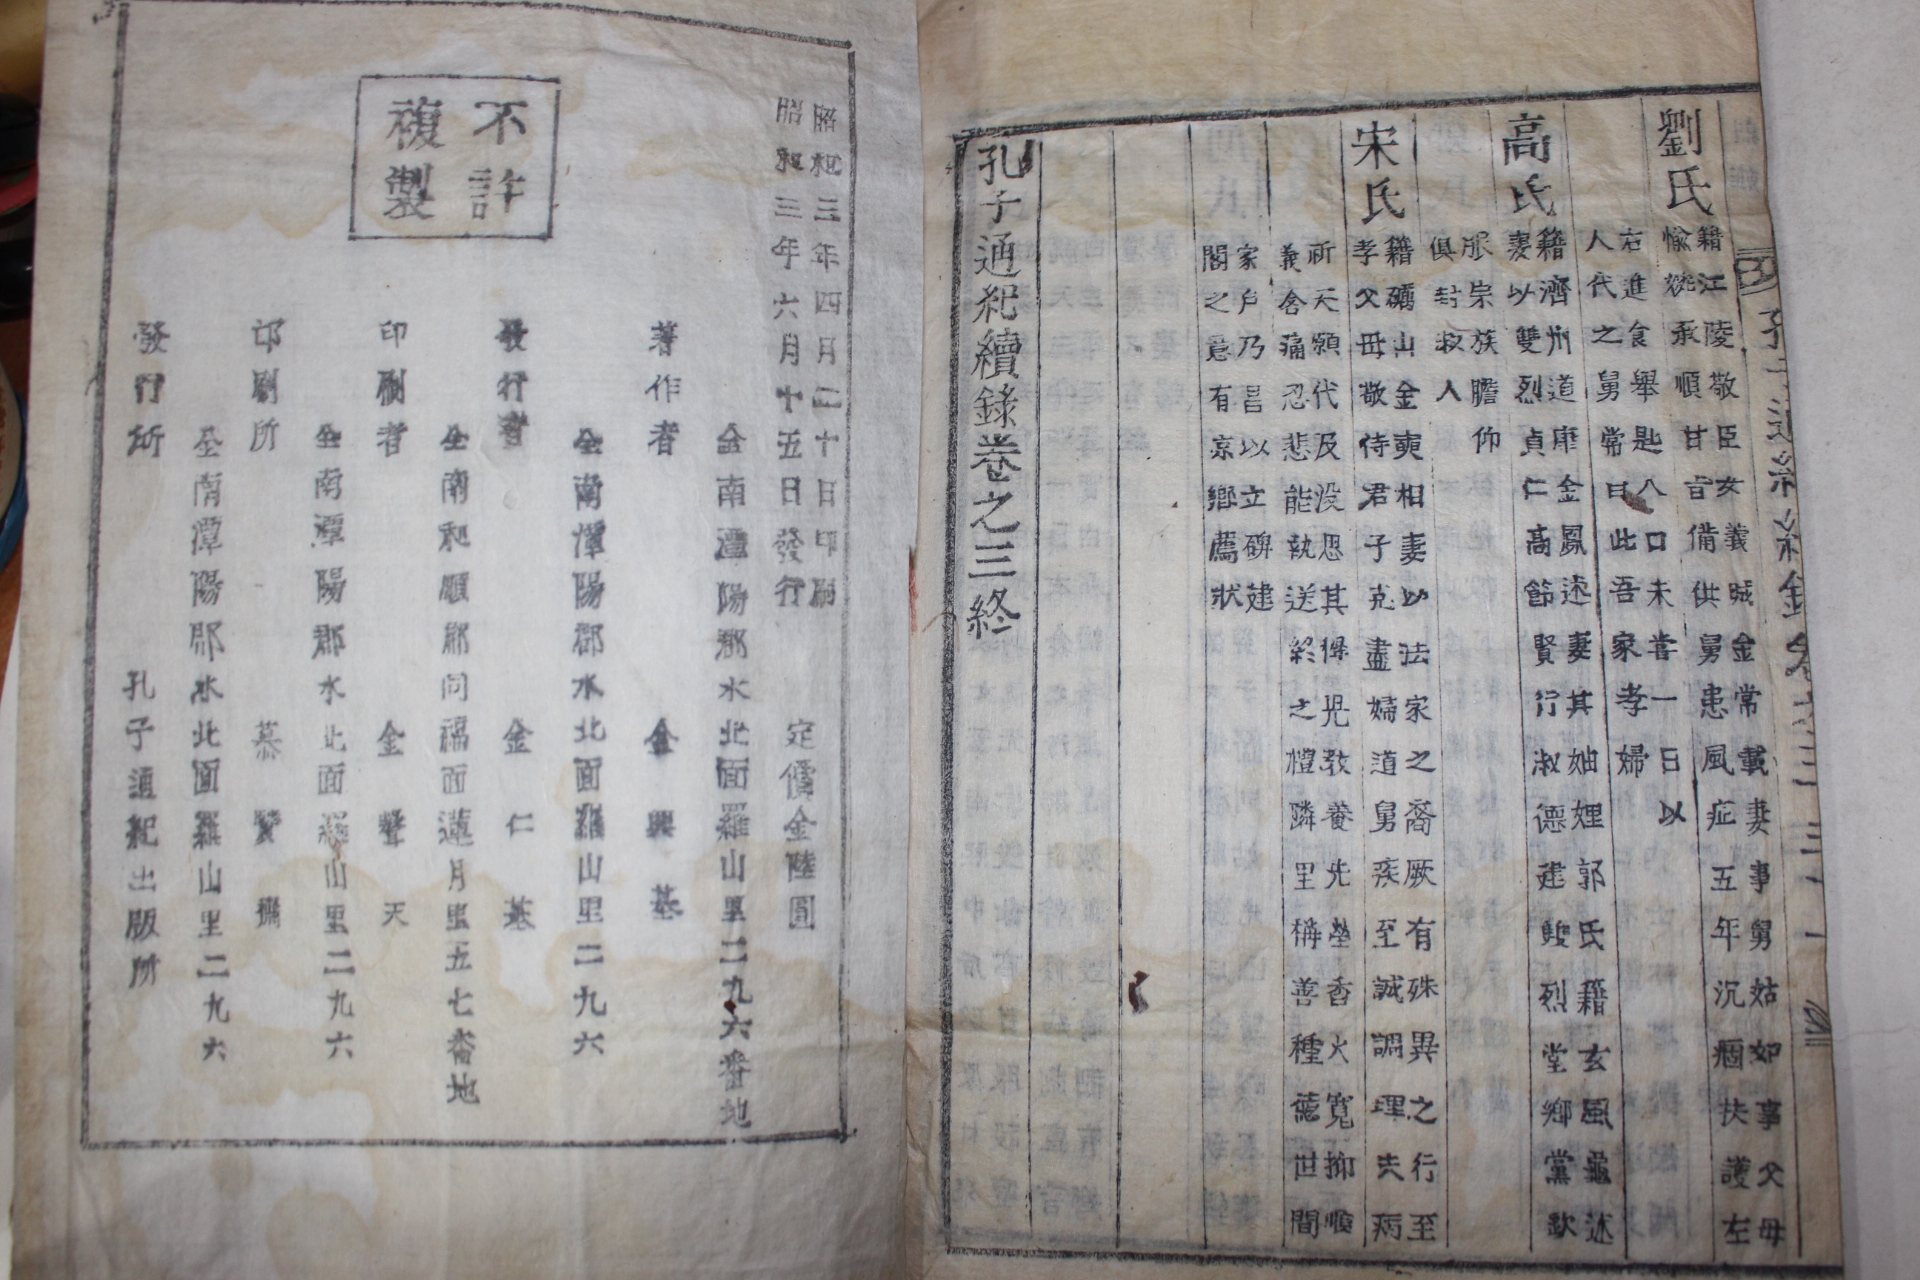 劉氏
籍江陵敬臣女義城金常載妻事舅姑如事父母
愉婉承順甘旨備供舅患風症五年沉痼扶護左
右進食舉匙八口未嘗一日以
人代之舅常曰此吾家孝婦
高氏
籍濟州道康金鳳述妻其妯娌郭氏籍玄風龜述
妻以雙烈貞仁高節賢行淑德建雙烈堂鄉黨欽
服宗族膽仰
俱封叔人
宋氏
籍礪山金奭相妻以法家之裔厥有殊異之行至
孝父母敬侍君子克盡婦道舅疾至誠調理夫病
祈天願代及没思其得兒教養先塋香火寬抑順
義含痛忍悲能執送終之禮隣里稱善種德世間
家户乃昌以立碑建
閣之意有京鄉薦狀
孔子通紀續錄卷之三終
昭和三年四月二十日印刷
昭和三年六月十五日發行
定價金陸圓
不許
複製
全南潭陽郡水北面羅山里二九六番地
著作者 金興基
全南潭陽郡水北面羅山里二九六
發行者 金仁基
全南和順郡同福面蓮月里五七番地
印刷者 金聲天
全南潭陽郡水北面羅山里二九六
印刷所 慕賢
全南潭陽郡水北面羅山里二九六
發行所 孔子通紀出版所